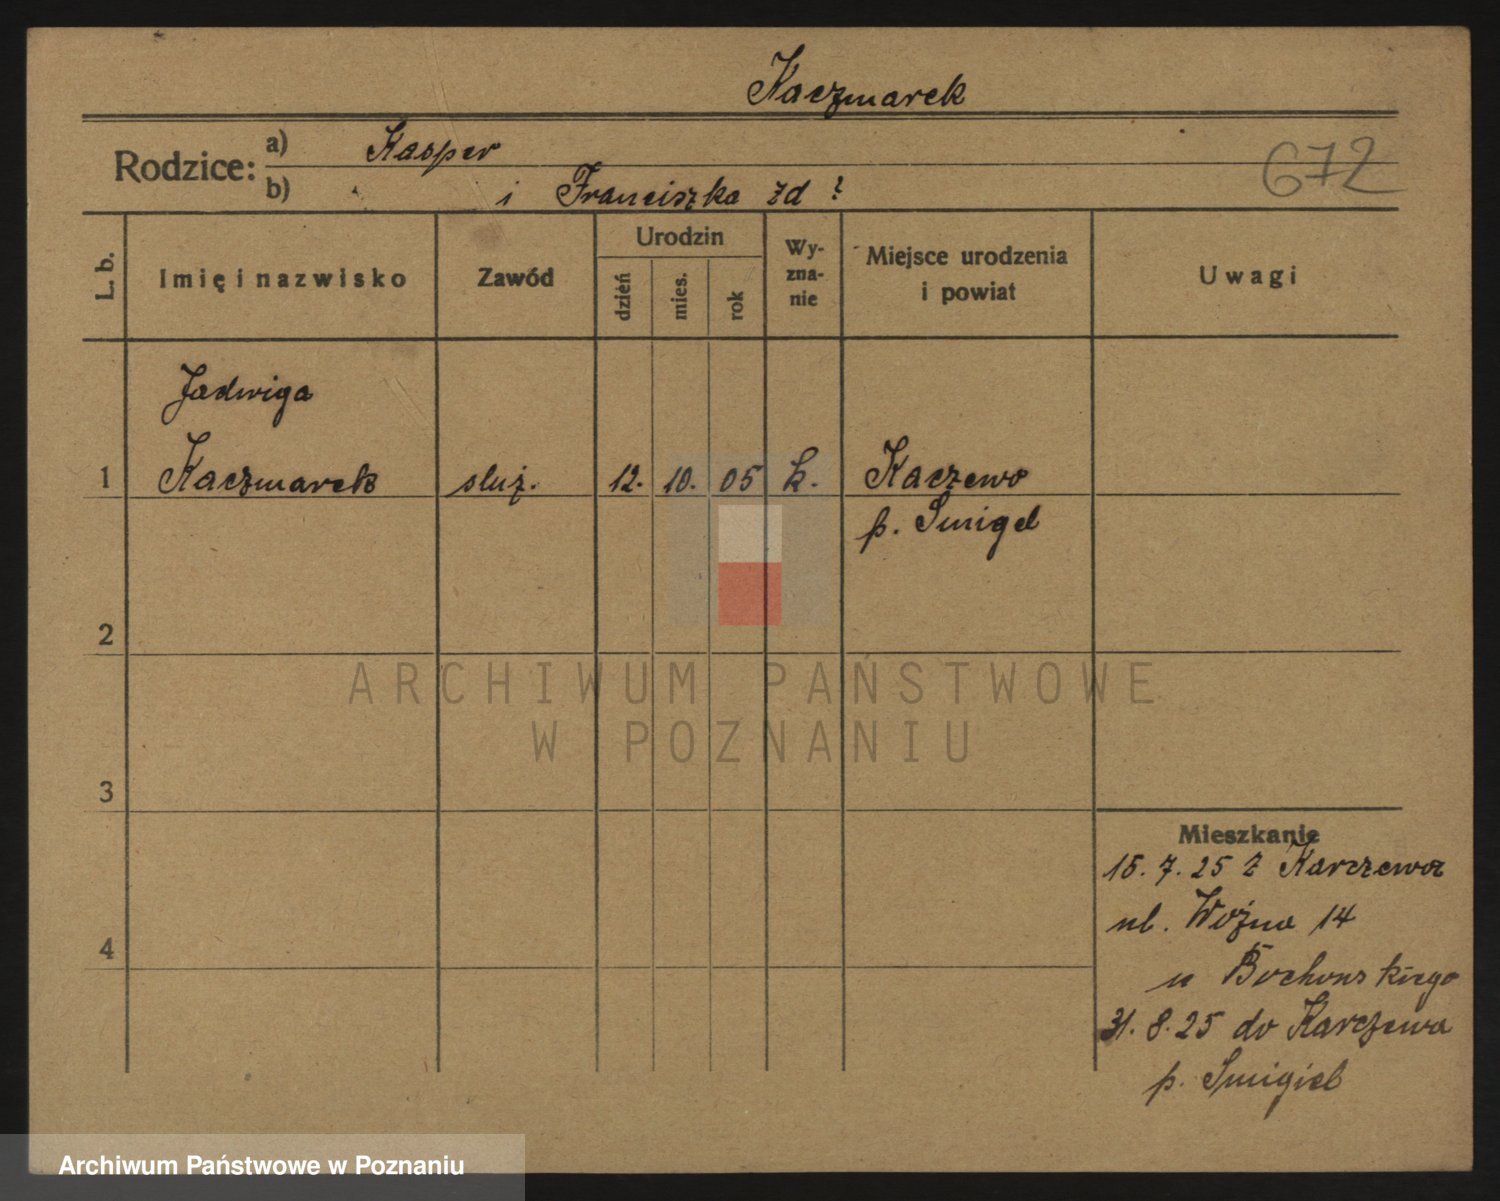 Kaczmarek
Rodzice: a) Kasper
b) i Franciszka zd ?
672
L. b. Imię i nazwisko Zawód Urodzin dzień mies. rok Wy-zna-nie Miejsce urodzenia i powiat Uwagi
Jadwiga
1 Kaczmarek służ. 12. 10. 05 k. Kaczewo
p. Śmigel
2
3
4
Mieszkanie
15. 7. 25 z Karczewa
ul. Woźna 14
u Bochonskiego
31. 8. 25 do Karczewa
p. Smigiel
ARCHIWUM PAŃSTWOWE
W POZNANIU
Archiwum Państwowe w Poznaniu